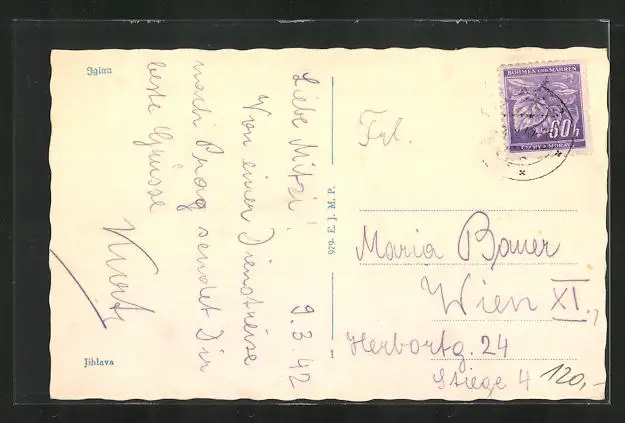 Iglau
Liebe Mitzi! 9.3.42
Von einer Dienstreise
nach Prag sendet Dir
beste Grüsse
Jihlava
979- E. J. M. P.
BÖHMEN UND MÄHREN
60h
ČECHY A MORAVA
Frl.
Maria Bauer
Wien XI.,
Herbortg. 24
Stiege 4
120,-